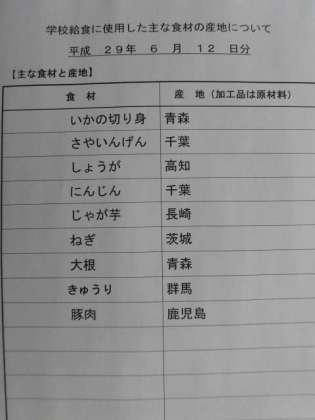 学校給食に使用した主な食材の産地について
平成 29年 6 月 12 日分
【主な食材と産地】
食 材 産 地（加工品は原材料）
いかの切り身 青森
さやいんげん 千葉
しょうが 高知
にんじん 千葉
じゃが芋 長崎
ねぎ 茨城
大根 青森
きゅうり 群馬
豚肉 鹿児島